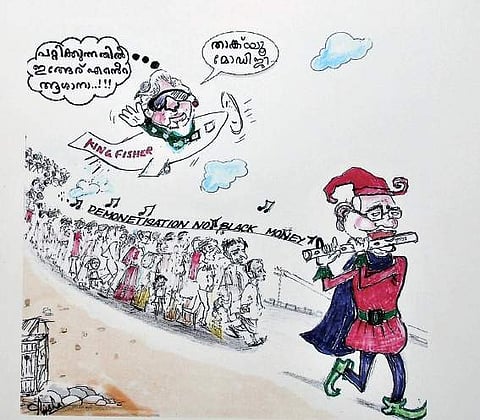 പറ്റിക്കുന്നതിൽ
ഇങ്ങേര് എന്റെ
ആശാനാ..!!!
താങ്ക്യൂ
മോഡിജീ
KING FISHER
DEMONETISATION NO BLACK MONEY